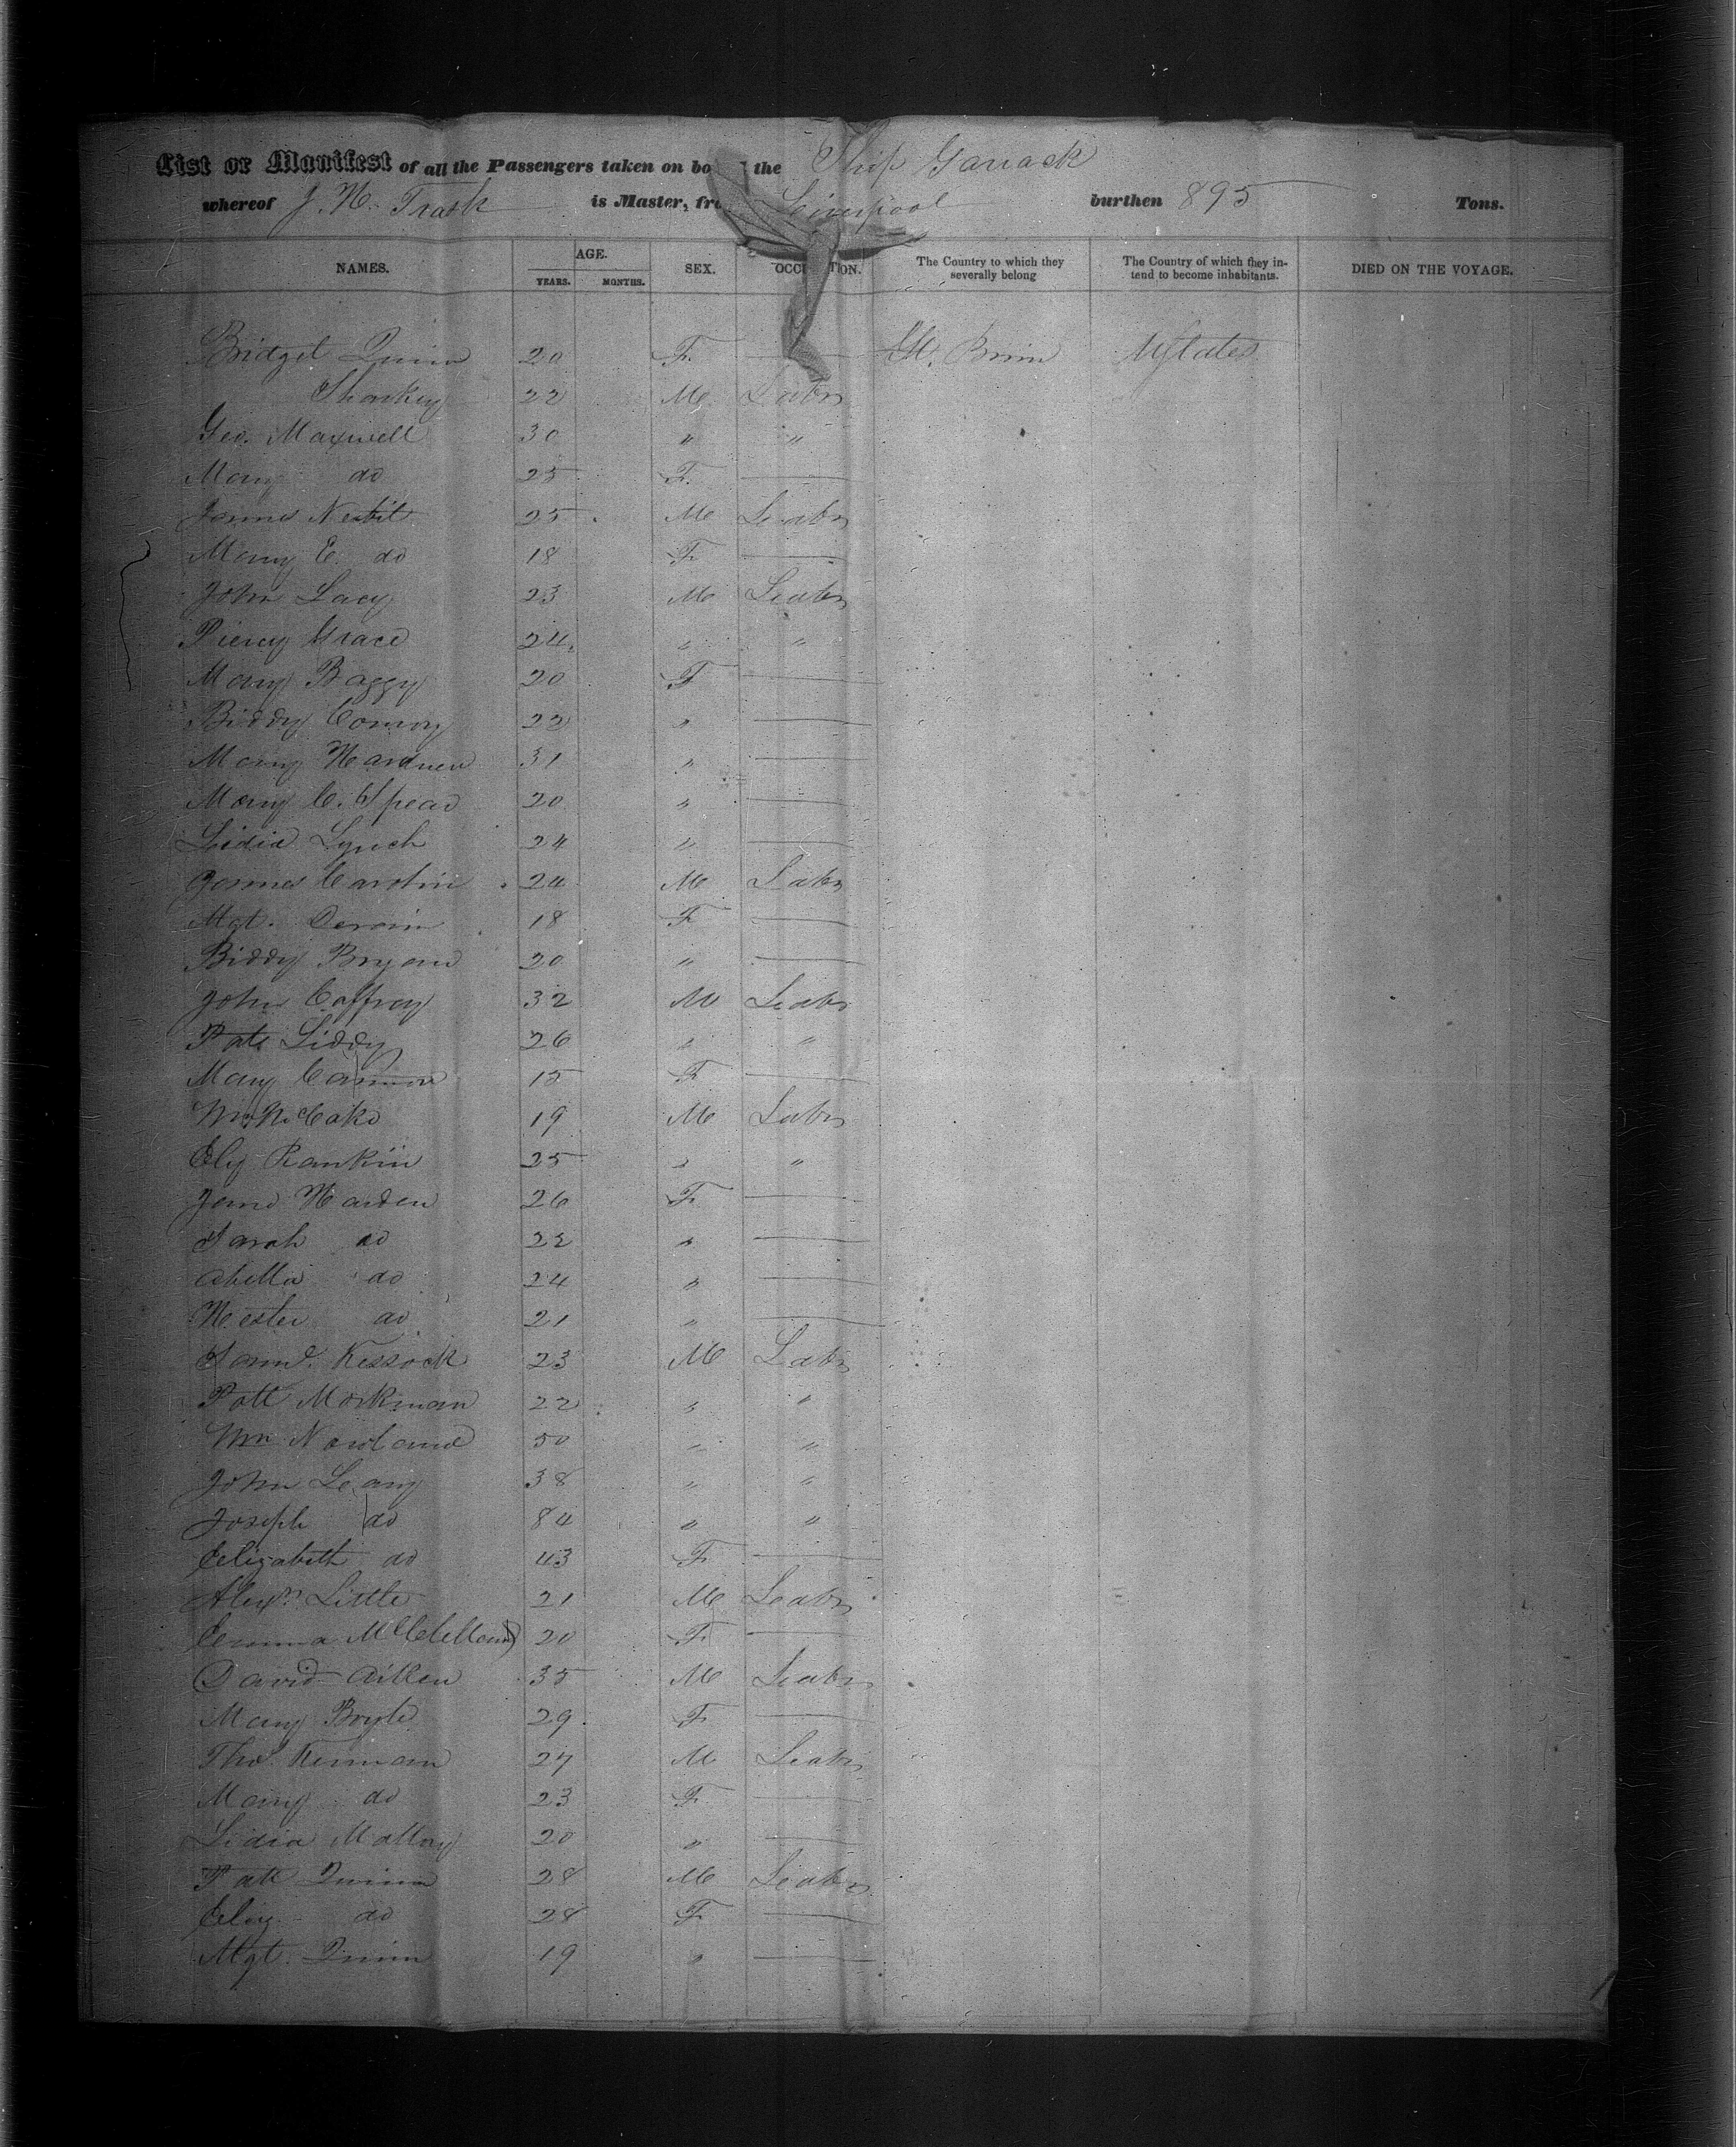 List or Manifest of all the Passengers taken on bo the Ship Garrack
whereof J. H. Trask is Master, fro Liverpool burthen 895 Tons.
NAMES. AGE. YEARS. MONTHS. SEX. OCCU TION. The Country to which they severally belong The Country of which they intend to become inhabitants. DIED ON THE VOYAGE.
Bridget Quinn 20 F. — Gt. Britn Ustates
Sharkey 22 M Labr
Geo. Maxwell 30 " "
Mary do 25 F. —
James Nesbit 25 M Labr
Mary E. do 18 F —
John Lacy 23 M Labr
Piercy Grace 24 " "
Mary Baggy 20 F —
Biddy Conroy 22 " —
Mary 31 " —
Mary C. Spear 20 " —
Lidia Lynch 24 " —
James Carolin 24 M Labr
Mgt. 18 F —
Biddy Bryan 20 " —
John Caffray 32 M Labr
Patt Liddy 26 " "
Mary Cannon 15 F —
Wm McCake 19 M Labr
Ely Rankin 25 " "
Jane Harden 26 F —
Sarah do 22 " —
Abella do 24 " —
Hester do 21 " —
Saml. Kessock 23 M Labr
Patt Morkman 22 " "
Wm Nowland 50 " "
John Leany 38 " "
Joseph do 84 " "
Elizabeth do 43 F —
Alexr. Little 21 M Labr
Emma McClelland 20 F —
David Aitken 35 M Labr
Mary Boyle 29 F —
Thos. Kennan 27 M Labr
Mary do 23 F —
Lidia Malloy 20 " —
Patt Quinn 28 M Labr
Eley do 28 F —
Mgt. Quinn 19 " —